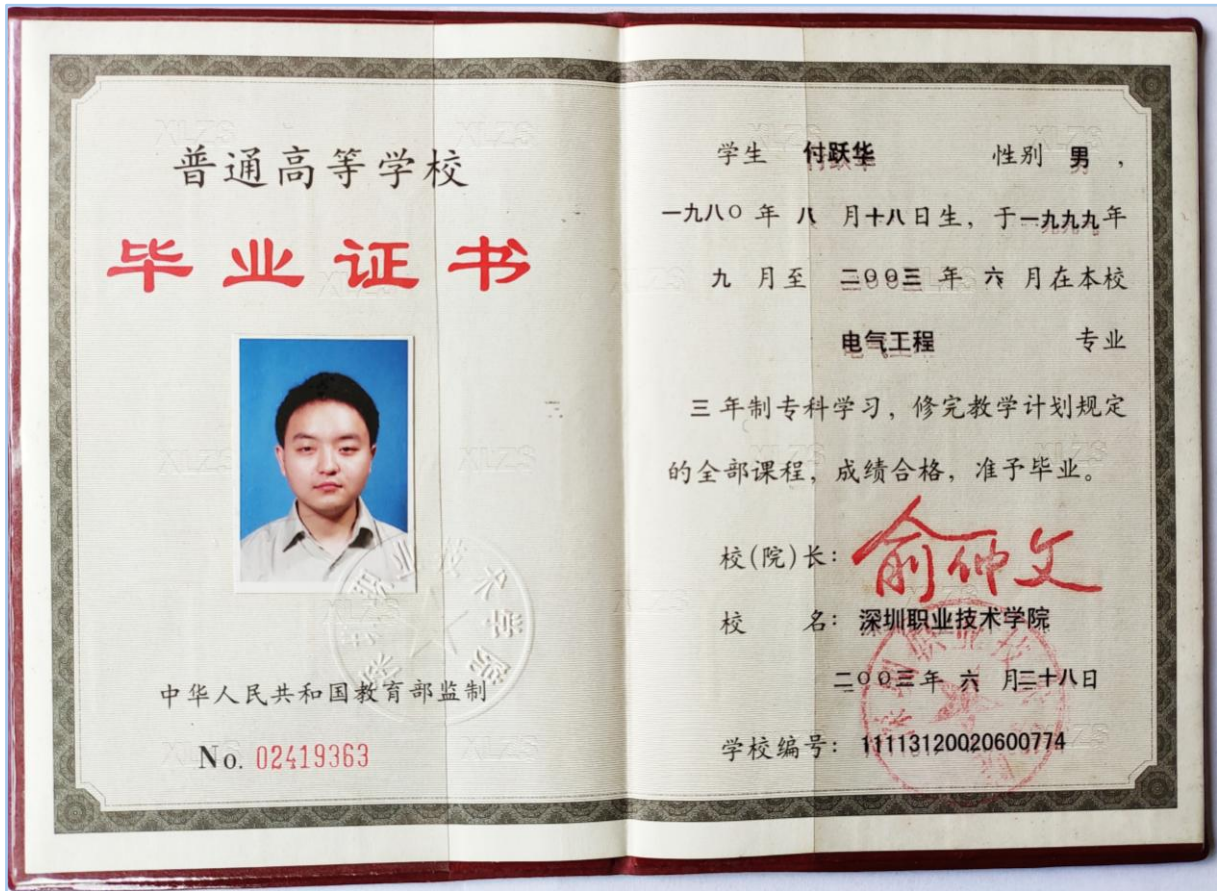 普通高等学校
毕业证书
中华人民共和国教育部监制
No. 02419363
学生 付跃华 性别 男，
一九八〇年 八 月十八日生，于一九九九年
九 月至 二〇〇三 年 六 月在本校
电气工程 专业
三 年制专科学习，修完教学计划规定
的全部课程，成绩合格，准予毕业。
校(院)长：俞仲文
校 名：深圳职业技术学院
二〇〇三年 六 月二十八日
学校编号：11113120020600774
XLZS
深圳职业技术学院